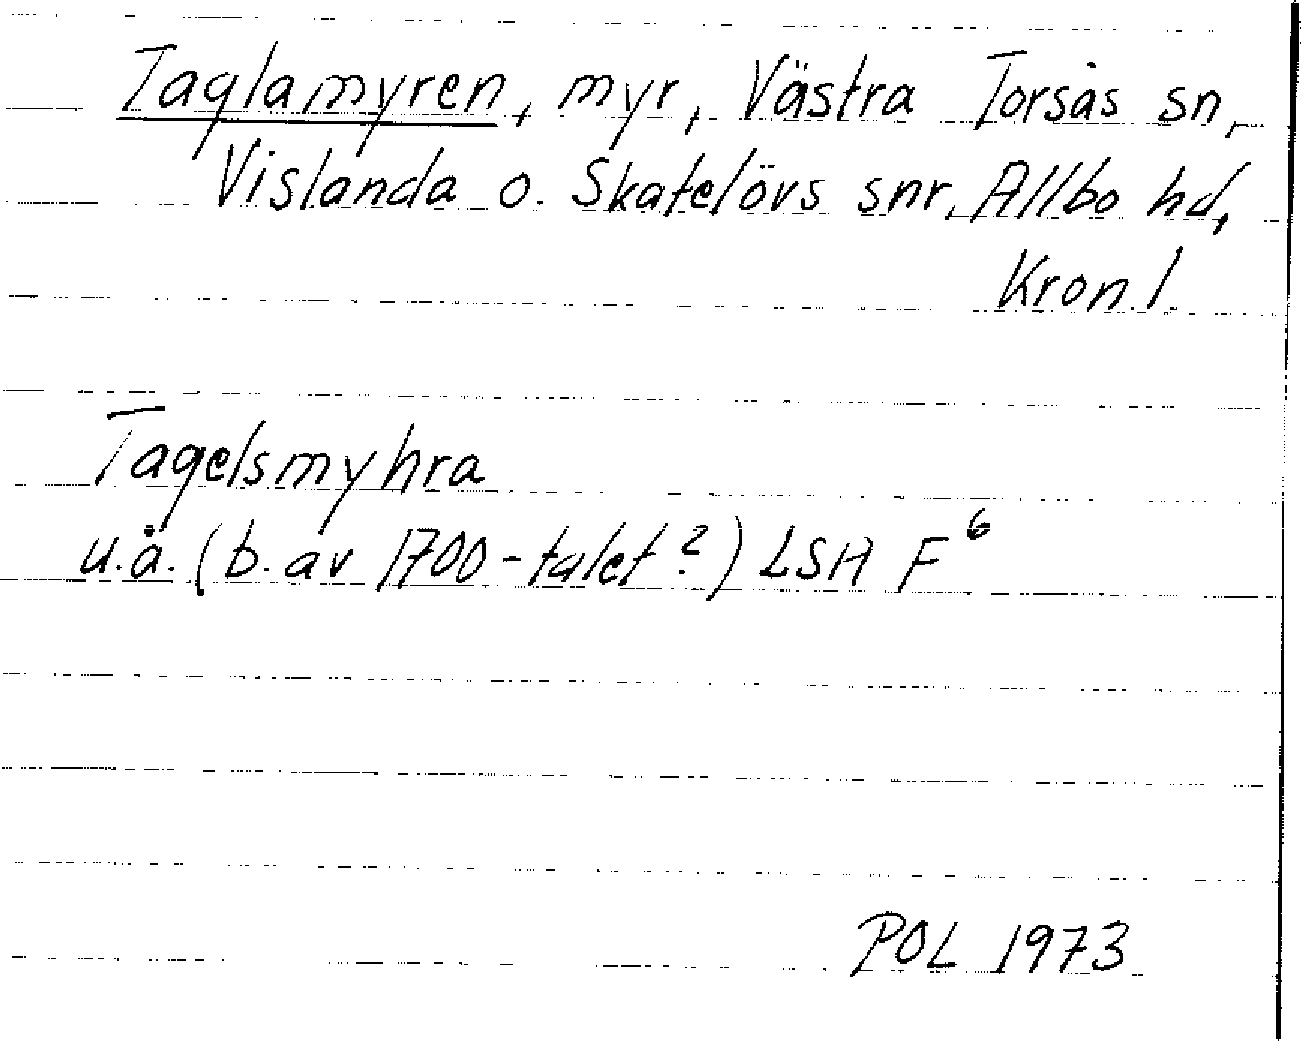 Taglamyren, myr, Västra Torsås sn,
Vislanda o. Skatelövs snr, Allbo hd,
Kron.l.
Tagelsmyhra
u.å. (b. av 1700-talet?) LSA F⁶
POL 1973